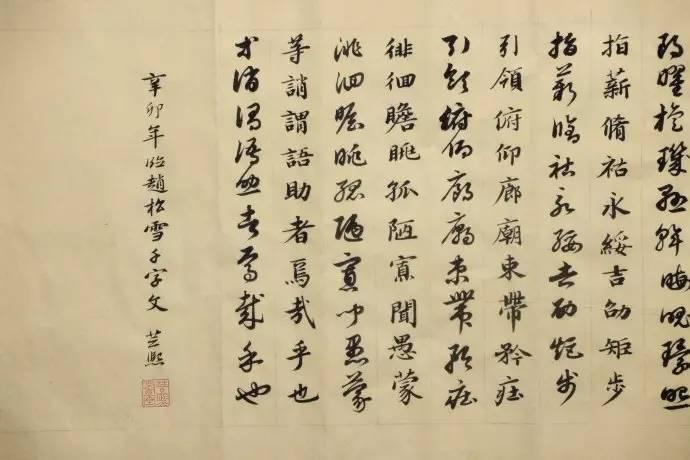 朗曜旋璣懸斡晦魄環照
指薪脩祜永綏吉劭矩步
指薪脩祜永綏吉劭矩步
引領俯仰廊廟束帶矜莊
引領俯仰廊廟束帶矜莊
徘徊瞻眺孤陋寡聞愚蒙
徘徊瞻眺孤陋寡聞愚蒙
等誚謂語助者焉哉乎也
等誚謂語助者焉哉乎也
辛卯年臨趙松雪千字文 芝熙